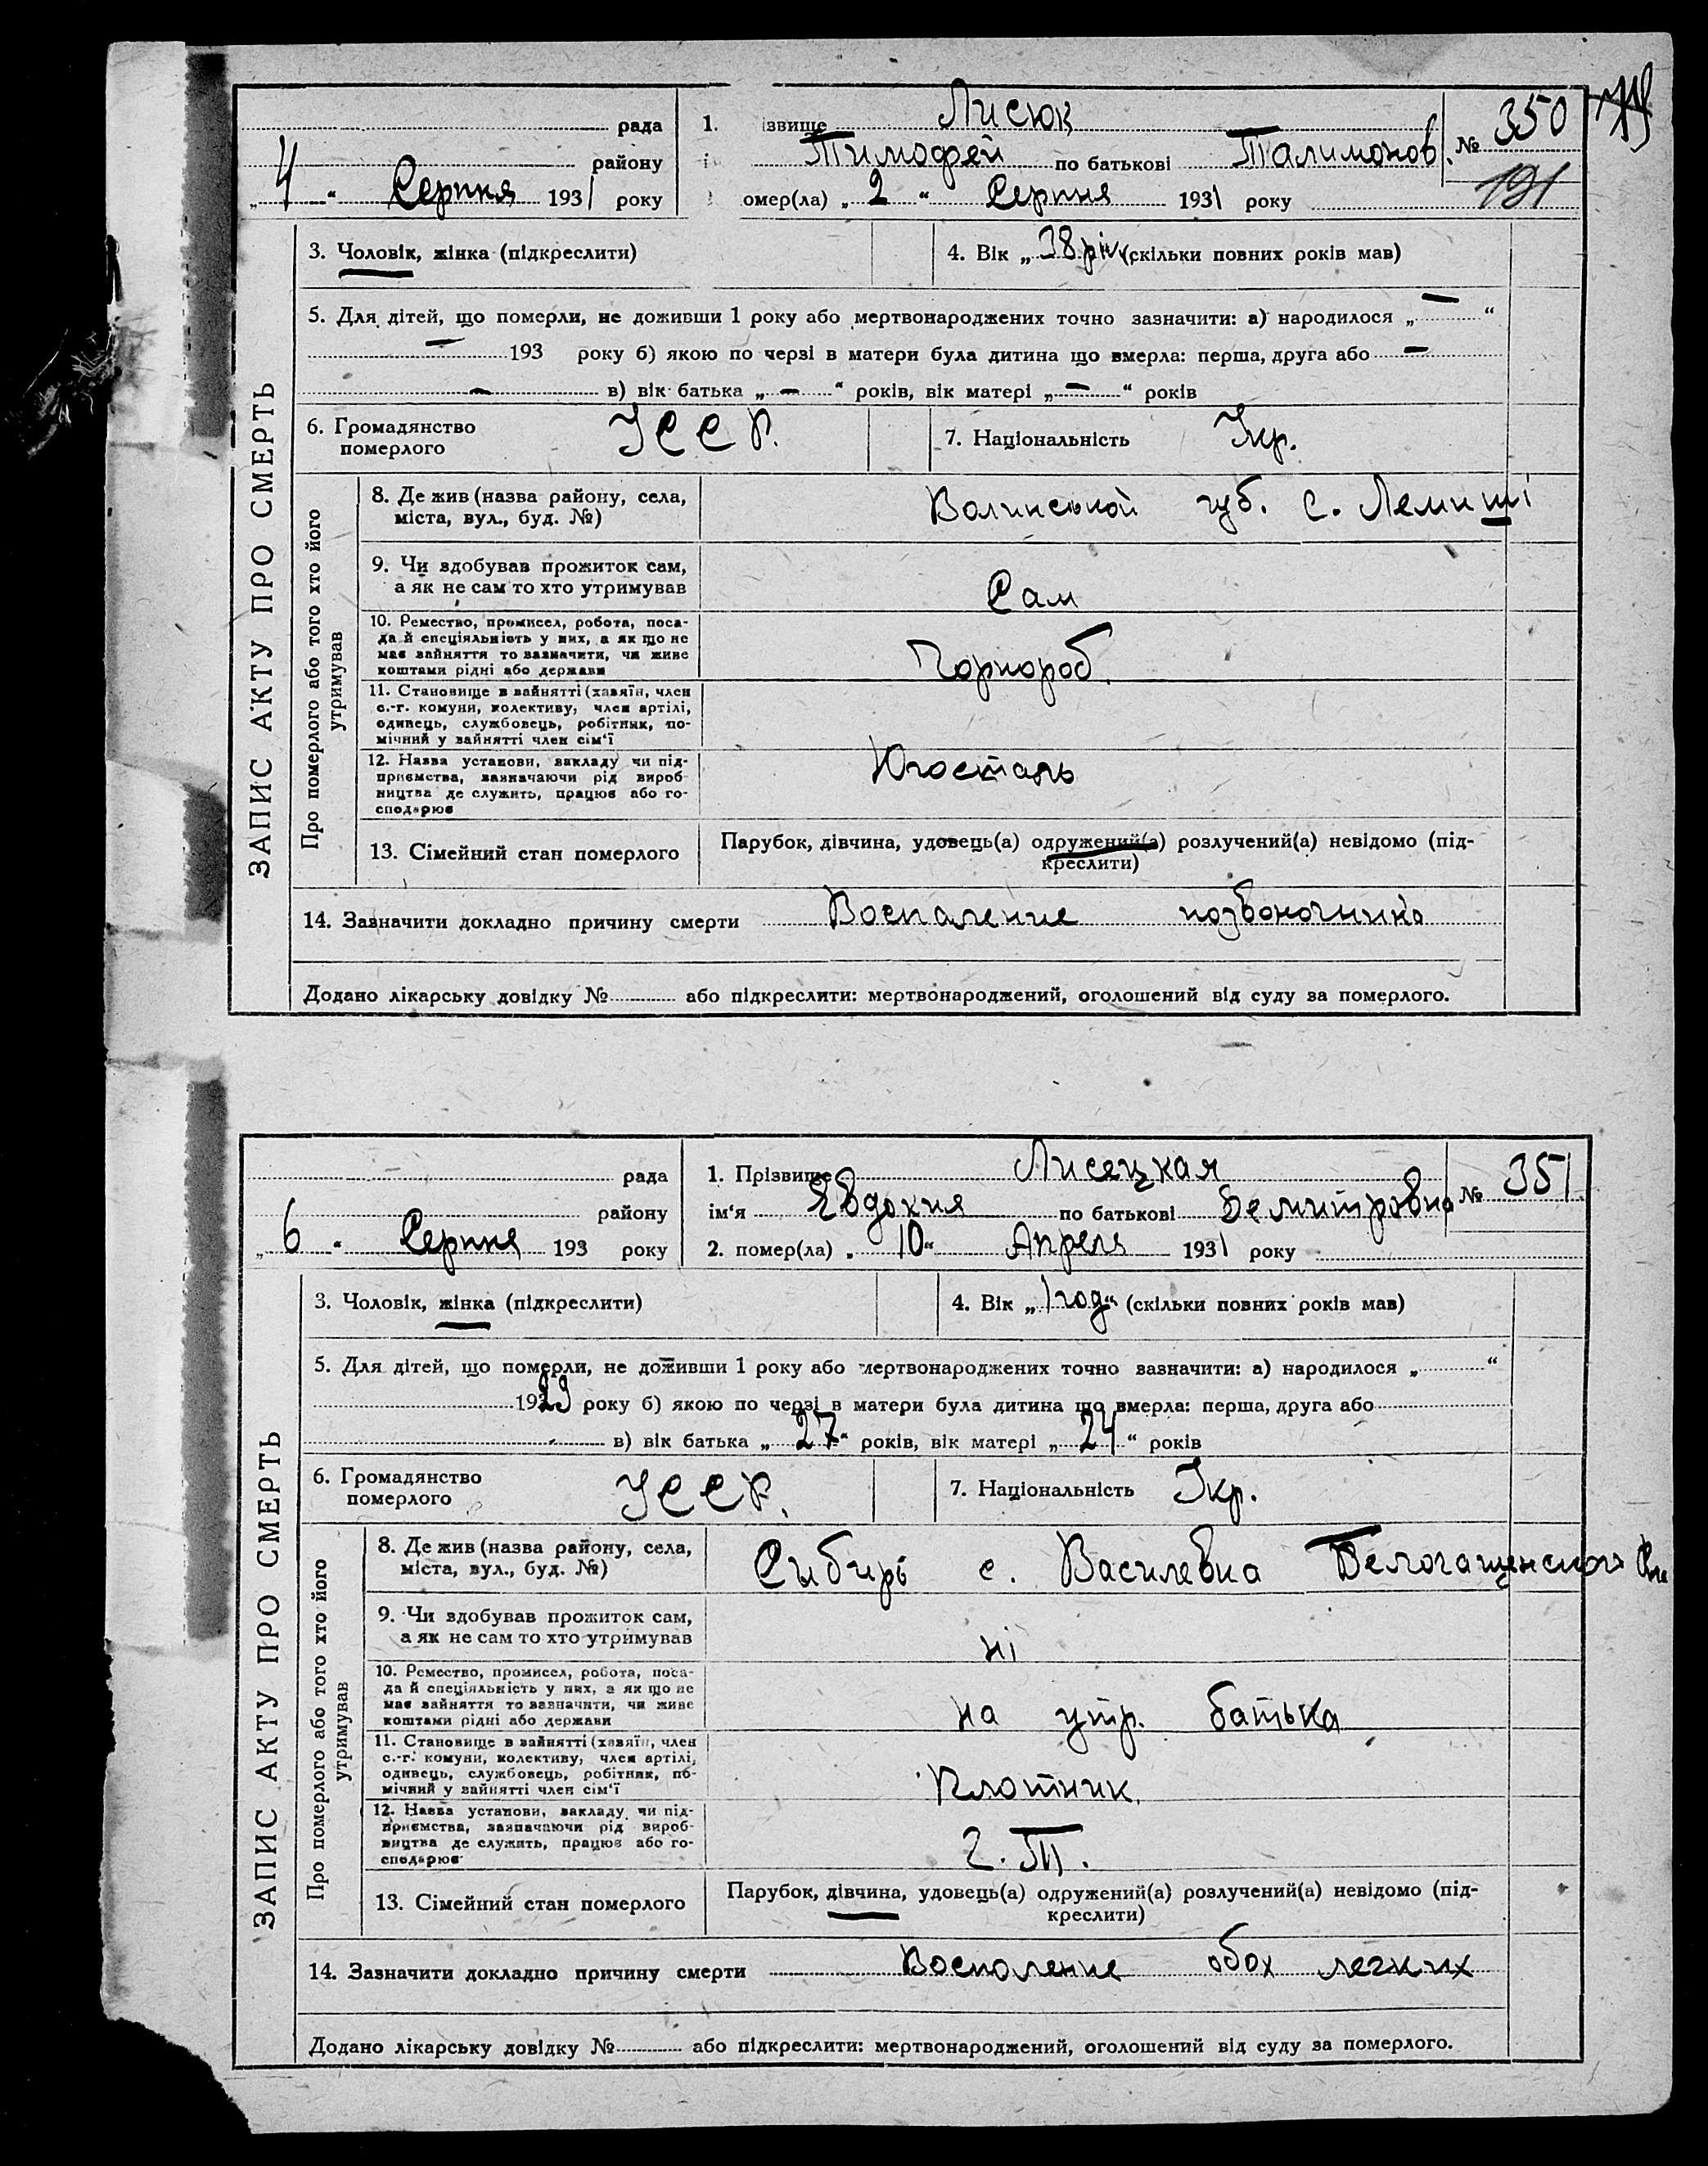 рада
району
„4“ Серпня 1931 року
1. ізвище Лисюк
Тимофей по батькові Талимонов.
омер(ла) „2“ Серпня 1931 року
№ 350
191
ЗАПИС АКТУ ПРО СМЕРТЬ
3. Чоловік, жінка (підкреслити)
4. Вік „38 рік“ (скільки повних років мав)
5. Для дітей, що померли, не доживши 1 року або мертвонароджених точно зазначити: а) народилося „—“
— 193 року б) якою по черзі в матери була дитина що вмерла: перша, друга або —
— в) вік батька „—“ років, вік матері „—“ років
6. Громадянство
померлого
УССР.
7. Національність Укр.
Про померлого або того хто його
утримував
8. Де жив (назва району, села,
міста, вул., буд. №)
Волинської губ. с. Лемиші
9. Чи здобував прожиток сам,
а як не сам то хто утримував
Сам
10. Ремество, промисел, робота, поса-
да й спеціяльність у них, а як що не
має зайняття то зазначити, чи живе
коштами рідні або держави
Чорнороб.
11. Становище в зайнятті (хазяїн, член
с.-г. комуни, колективу, член артілі,
одинець, службовець, робітник, по-
мічний у зайнятті член сім'ї
12. Назва установи, закладу чи під-
приємства, зазначаючи рід вироб-
ництва де служить, працює або го-
сподарює
Югосталь
13. Сімейний стан померлого
Парубок, дівчина, удовець(а) одружений(а) розлучений(а) невідомо (під-
креслити)
14. Зазначити докладно причину смерти Воспаление позвоночника
Додано лікарську довідку № або підкреслити: мертвонароджений, оголошений від суду за померлого.
рада
району
„6“ Серпня 193 року
1. Прізвище Лисецкая
ім'я Евдокия по батькові Демитровна
2. помер(ла) „10“ Апреля 1931 року
№ 351
ЗАПИС АКТУ ПРО СМЕРТЬ
3. Чоловік, жінка (підкреслити)
4. Вік „1 год“ (скільки повних років мав)
5. Для дітей, що померли, не доживши 1 року або мертвонароджених точно зазначити: а) народилося „ “
1929 року б) якою по черзі в матери була дитина що вмерла: перша, друга або
в) вік батька „27“ років, вік матері „24“ років
6. Громадянство
померлого
УССР.
7. Національність Укр.
Про померлого або того хто його
утримував
8. Де жив (назва району, села,
міста, вул., буд. №)
Сыбирь с. Василевка
9. Чи здобував прожиток сам,
а як не сам то хто утримував
ні
10. Ремество, промисел, робота, поса-
да й спеціяльність у них, а як що не
має зайняття то зазначити, чи живе
коштами рідні або держави
на утр. батька
11. Становище в зайнятті (хазяїн, член
с.-г. комуни, колективу, член артілі,
одинець, службовець, робітник, по-
мічний у зайнятті член сім'ї
Плотник.
12. Назва установи, закладу чи під-
приємства, зазначаючи рід вироб-
ництва де служить, працює або го-
сподарює
Г. Т.
13. Сімейний стан померлого
Парубок, дівчина, удовець(а) одружений(а) розлучений(а) невідомо (під-
креслити)
14. Зазначити докладно причину смерти Восполение обох легких
Додано лікарську довідку № або підкреслити: мертвонароджений, оголошений від суду за померлого.